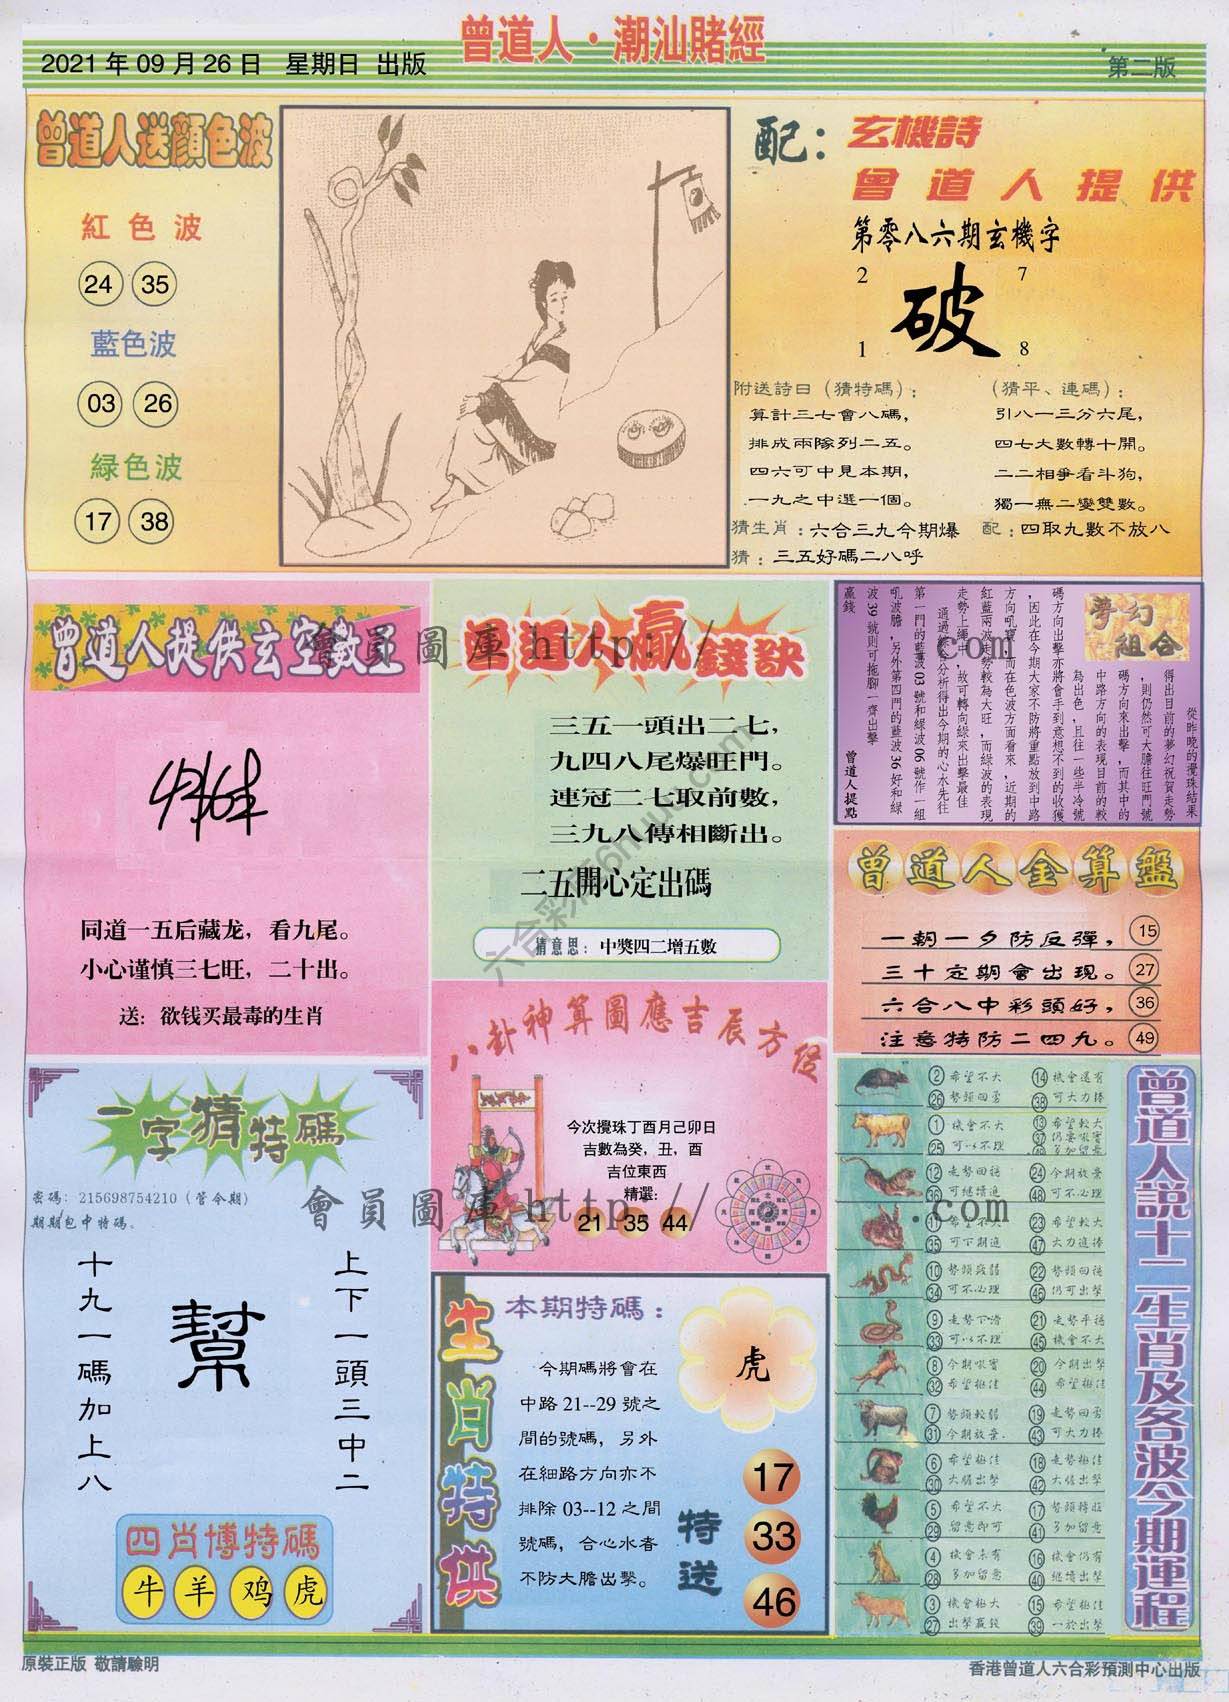 曾道人·潮汕賭經
2021年09月26日 星期日 出版
第二版
曾道人送顏色波
紅色波
24 35
藍色波
03 26
緑色波
17 38
配：玄機詩
曾道人提供
第零八六期玄機字
2 7
破
1 8
附送詩曰（猜特碼）：
算計三七會八碼，
排成兩隊列二五。
四六可中見本期，
一九之中選一個。
（猜平、連碼）：
引八一三分六尾，
四七大數轉十開。
二二相爭看斗狗，
獨一無二變雙數。
猜生肖：六合三九今期爆
配：四取九數不放八
猜：三五好碼二八呼
曾道人提供玄空數王
同道一五后藏龙，看九尾。
小心谨慎三七旺，二十出。
送：欲钱买最毒的生肖
曾道人贏錢訣
三五一頭出二七，
九四八尾爆旺門。
連冠二七取前數，
三九八傳相斷出。
二五開心定出碼
猜意思：中獎四二增五數
夢幻組合
從昨晚的攪珠結果
得出目前的夢幻祝賀走勢
，則仍然可大膽往旺門號
碼方向來出擊，而其中的
中路方向的表現目前的較
為出色，且往一些半冷號
碼方向出擊亦將會手到意想不到的收獲
，因此在今期大家不防將重點放到中路
方向吼寶，而在色波方面看來，近期的
紅藍兩波走勢較為大旺，而綠波的表現
走勢上繩中，故可轉向綠來出擊最佳
通過綜合分析得出今期的心水先往
第一門的藍波03號和綠波06號作一組
吼波膽，另外第四門的藍波36好和綠
波39號則可拖腳一齊出擊
贏錢
曾道人提點
曾道人金算盤
一朝一夕防反彈， 15
三十定期會出現。 27
六合八中彩頭好， 36
注意特防二四九。 49
八卦神算圖應吉辰方位
今次攪珠丁酉月己卯日
吉數為癸，丑，酉
吉位東西
精選：
21 35 44
一字猜特碼
密碼：215698754210（管今期）
期期包中特碼。
上下一頭三中二
幫
十九一碼加上八
四肖博特碼
牛 羊 鸡 虎
生肖特供
本期特碼：
虎
今期碼將會在
中路21--29號之
間的號碼，另外
在細路方向亦不
排除03--12之間
號碼，合心水者
不防大膽出擊。
特送
17
33
46
曾道人說十二生肖及各波今期運程
2 希望不大 14 機會還有
26 勢頭回勇 38 可大力捧
1 機會不大 13 希望較大
25 可以不理
12 走勢回穩 24 今期放棄
36 可繼續追 48 可不必理
11 希望不大 23 希望較大
35 可下期追 47 大力追捧
10 勢頭減弱 22 勢頭回穩
34 可不必理 46 仍可出擊
9 走勢下滑 21 走勢平穩
33 可以不理 45 機會不大
8 今期吼寶 20 今期出擊
32 希望極佳 44 希望極佳
7 勢頭較弱 19 走勢回勇
31 今期放棄 43 可大力捧
6 希望極佳 18 走勢極佳
30 大膽出擊 42 大膽出擊
5 希望不大 17 勢頭轉旺
29 留意即可 41 多加留意
4 機會未有 16 機會仍有
28 多加留意 40 繼續出擊
3 機會極大 15 希望極佳
27 出擊贏錢 39 一於出擊
會員圖庫 http:// .com
會員圖庫 http:// .com
原裝正版 敬請驗明
香港曾道人六合彩預測中心出版